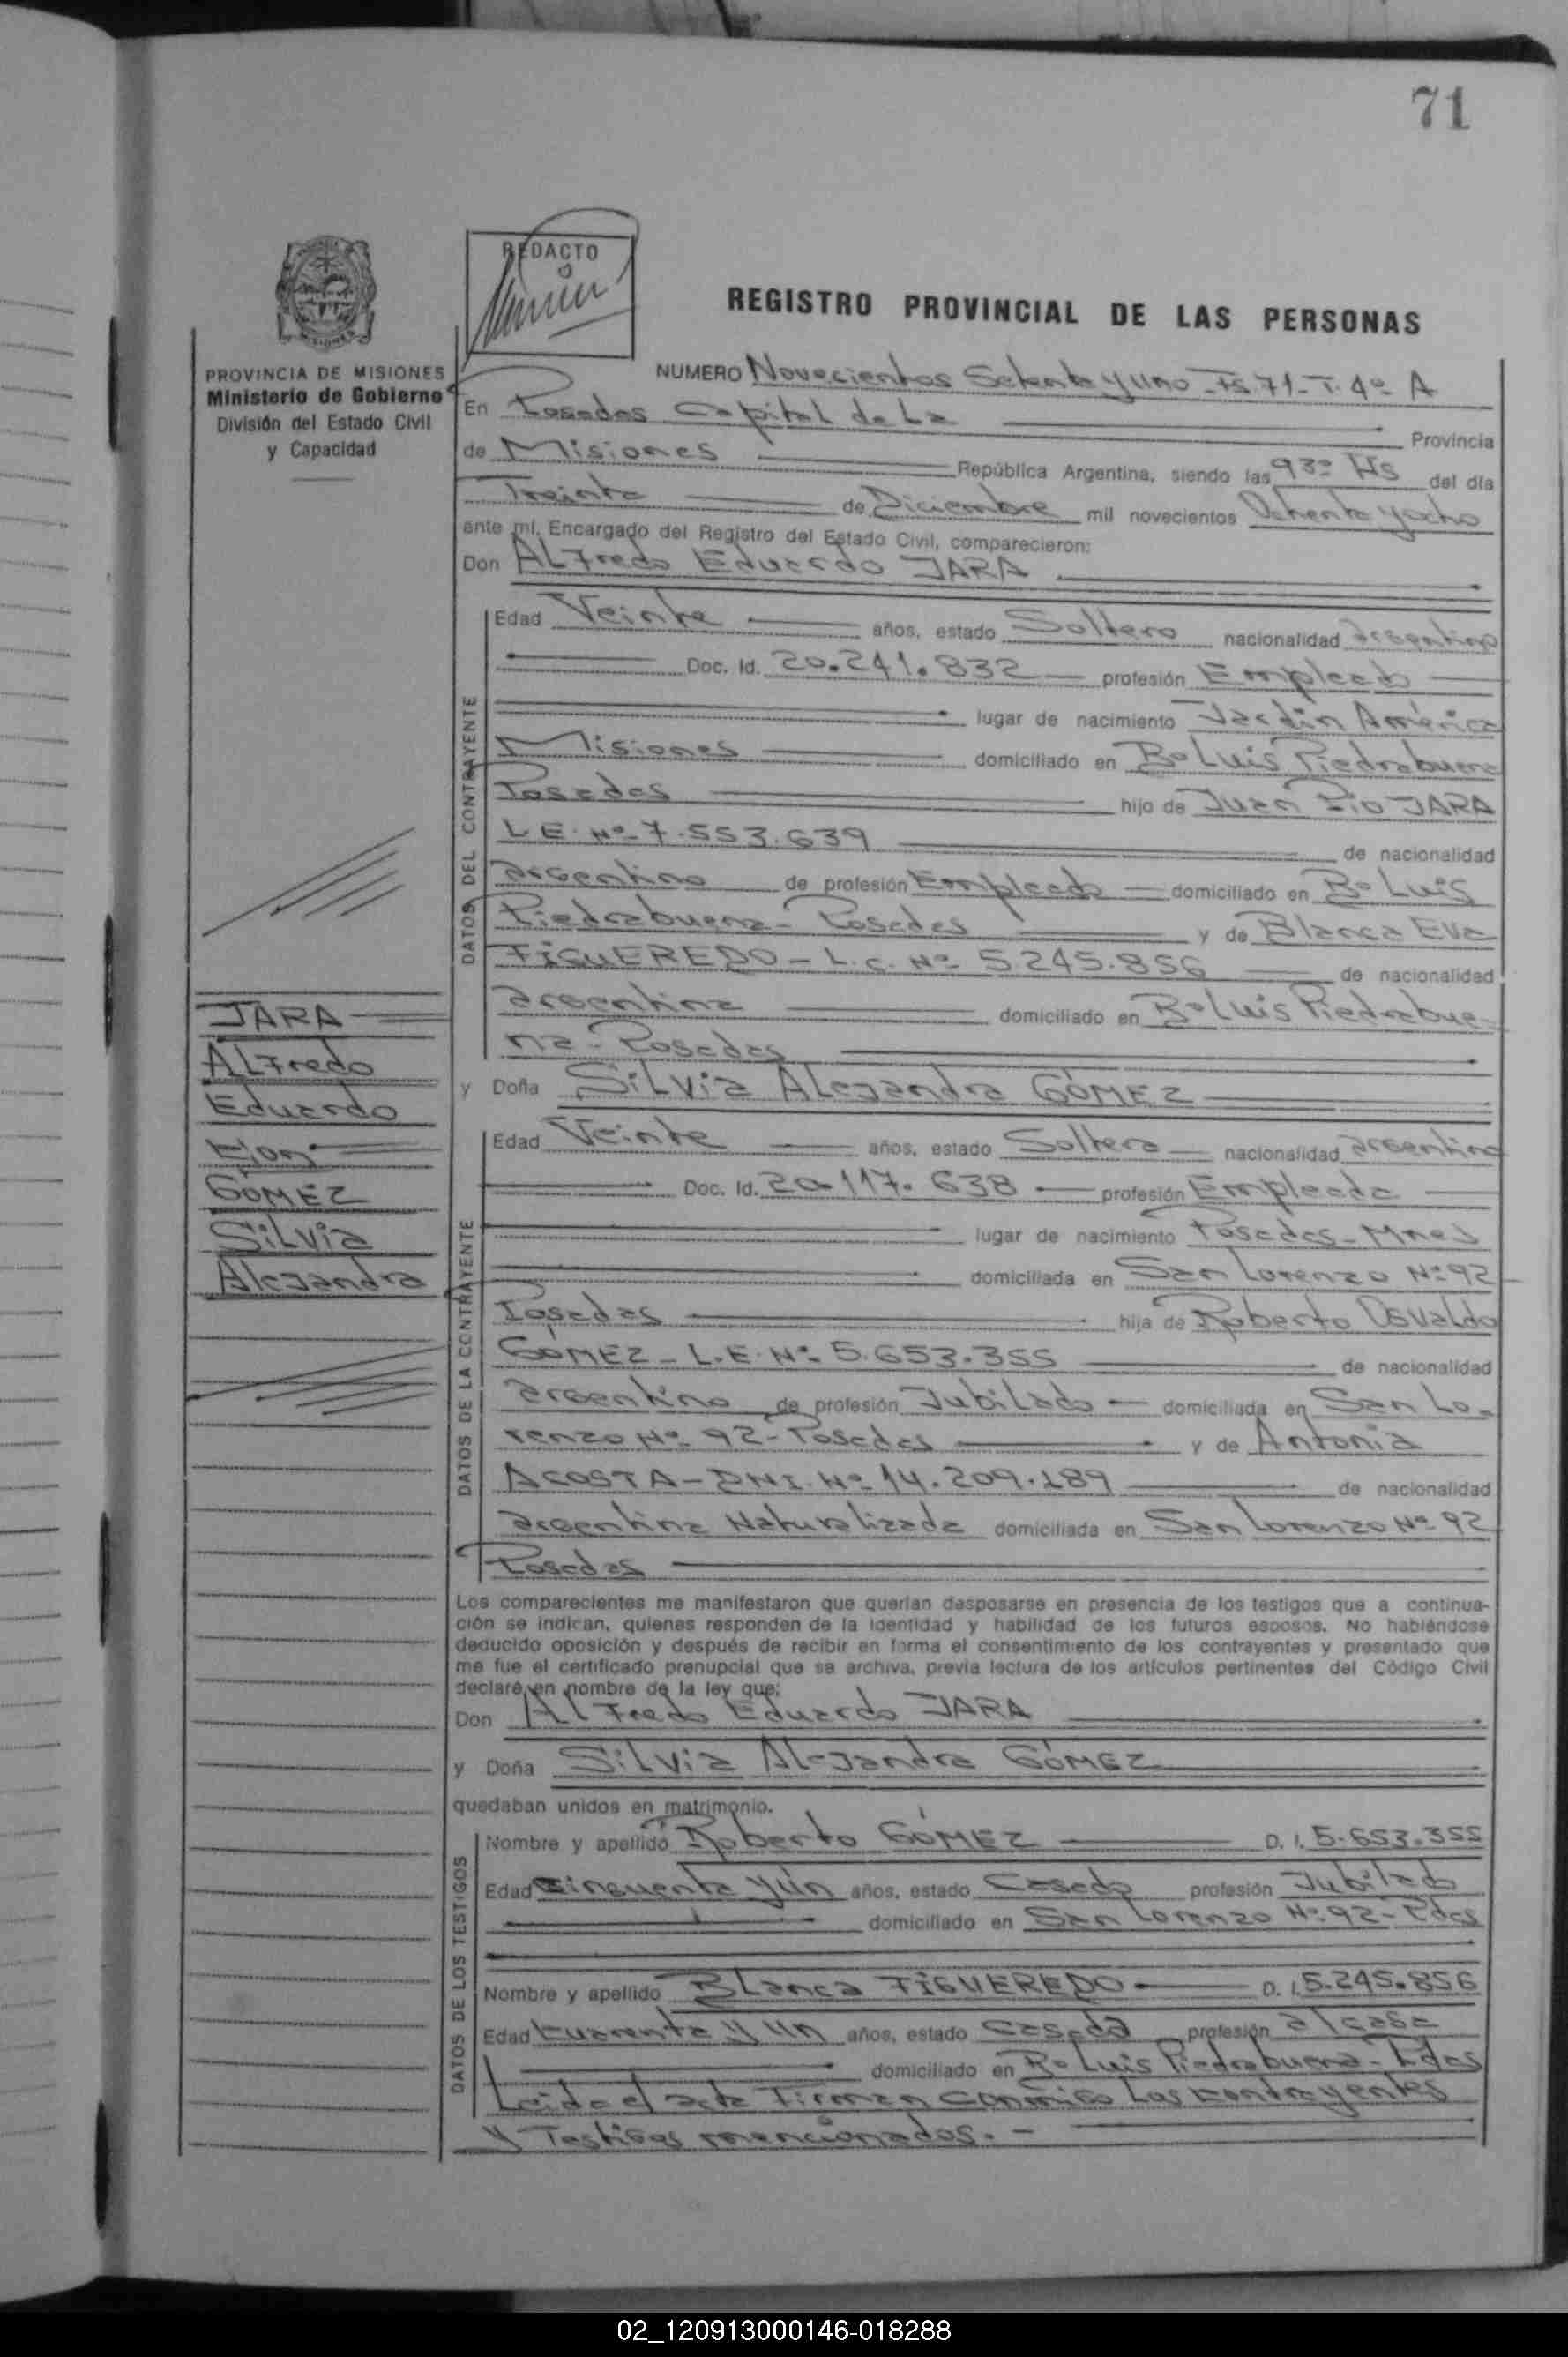 71
REDACTO
REGISTRO PROVINCIAL DE LAS PERSONAS
PROVINCIA DE MISIONES
Ministerio de Gobierno
División del Estado Civil
y Capacidad
NUMERO Novecientos Setenta y uno - Fs. 71 - T. 4º A
En Posadas Capital de La Provincia
de Misiones República Argentina, siendo las 9³º Hs del día
Treinta de Diciembre mil novecientos Ochenta y ocho
ante mí, Encargado del Registro del Estado Civil, comparecieron:
Don ALFredo Eduardo JARA
DATOS DEL CONTRAYENTE
Edad Veinte años, estado Soltero nacionalidad argentino
Doc. Id. 20.241.832 profesión Empleado
lugar de nacimiento Jardín América
Misiones domiciliado en Bº Luis Piedrabuena
Posadas hijo de Juan Pio JARA
L.E. Nº 7.553.639 de nacionalidad
argentino de profesión Empleado domiciliado en Bº Luis
Piedrabuena - Posadas y de Blanca Eva
FIGUEREDO - L.C. Nº 5.245.856 de nacionalidad
argentina domiciliado en Bº Luis Piedrabue-
na - Posadas
y Doña SiLvia Alejandra GÓMEZ
JARA
ALFredo
Eduardo
con
GÓMEZ
SiLvia
Alejandra
DATOS DE LA CONTRAYENTE
Edad Veinte años, estado Soltera nacionalidad argentina
Doc. Id. 20.117.638 profesión Empleada
lugar de nacimiento Posadas - Mnes
domiciliada en San Lorenzo Nº 92
Posadas hija de Roberto Osvaldo
GÓMEZ - L.E. Nº 5.653.355 de nacionalidad
argentino de profesión Jubilado domiciliada en San Lo-
renzo Nº 92 - Posadas y de Antonia
ACOSTA - DNI. Nº 14.209.189 de nacionalidad
argentina Naturalizada domiciliada en San Lorenzo Nº 92
Posadas
Los comparecientes me manifestaron que querían desposarse en presencia de los testigos que a continua-
ción se indican, quienes responden de la identidad y habilidad de los futuros esposos. No habiéndose
deducido oposición y después de recibir en forma el consentimiento de los contrayentes y presentado que
me fue el certificado prenupcial que se archiva, previa lectura de los artículos pertinentes del Código Civil
declaré, en nombre de la ley que:
Don ALFredo Eduardo JARA
y Doña SiLvia Alejandra GÓMEZ
quedaban unidos en matrimonio.
DATOS DE LOS TESTIGOS
Nombre y apellido Roberto GÓMEZ D. I. 5.653.355
Edad Cincuenta y un años, estado Casado profesión Jubilado
domiciliado en San Lorenzo Nº 92 - Pdas
Nombre y apellido BLanca FIGUEREDO D. I. 5.245.856
Edad Cuarenta y un años, estado Casada profesión a/casa
domiciliado en Bº Luis Piedrabuena - Pdas
Leida el acta Firman conmigo Los contrayentes
y Testigos mencionados. -
02_120913000146-018288